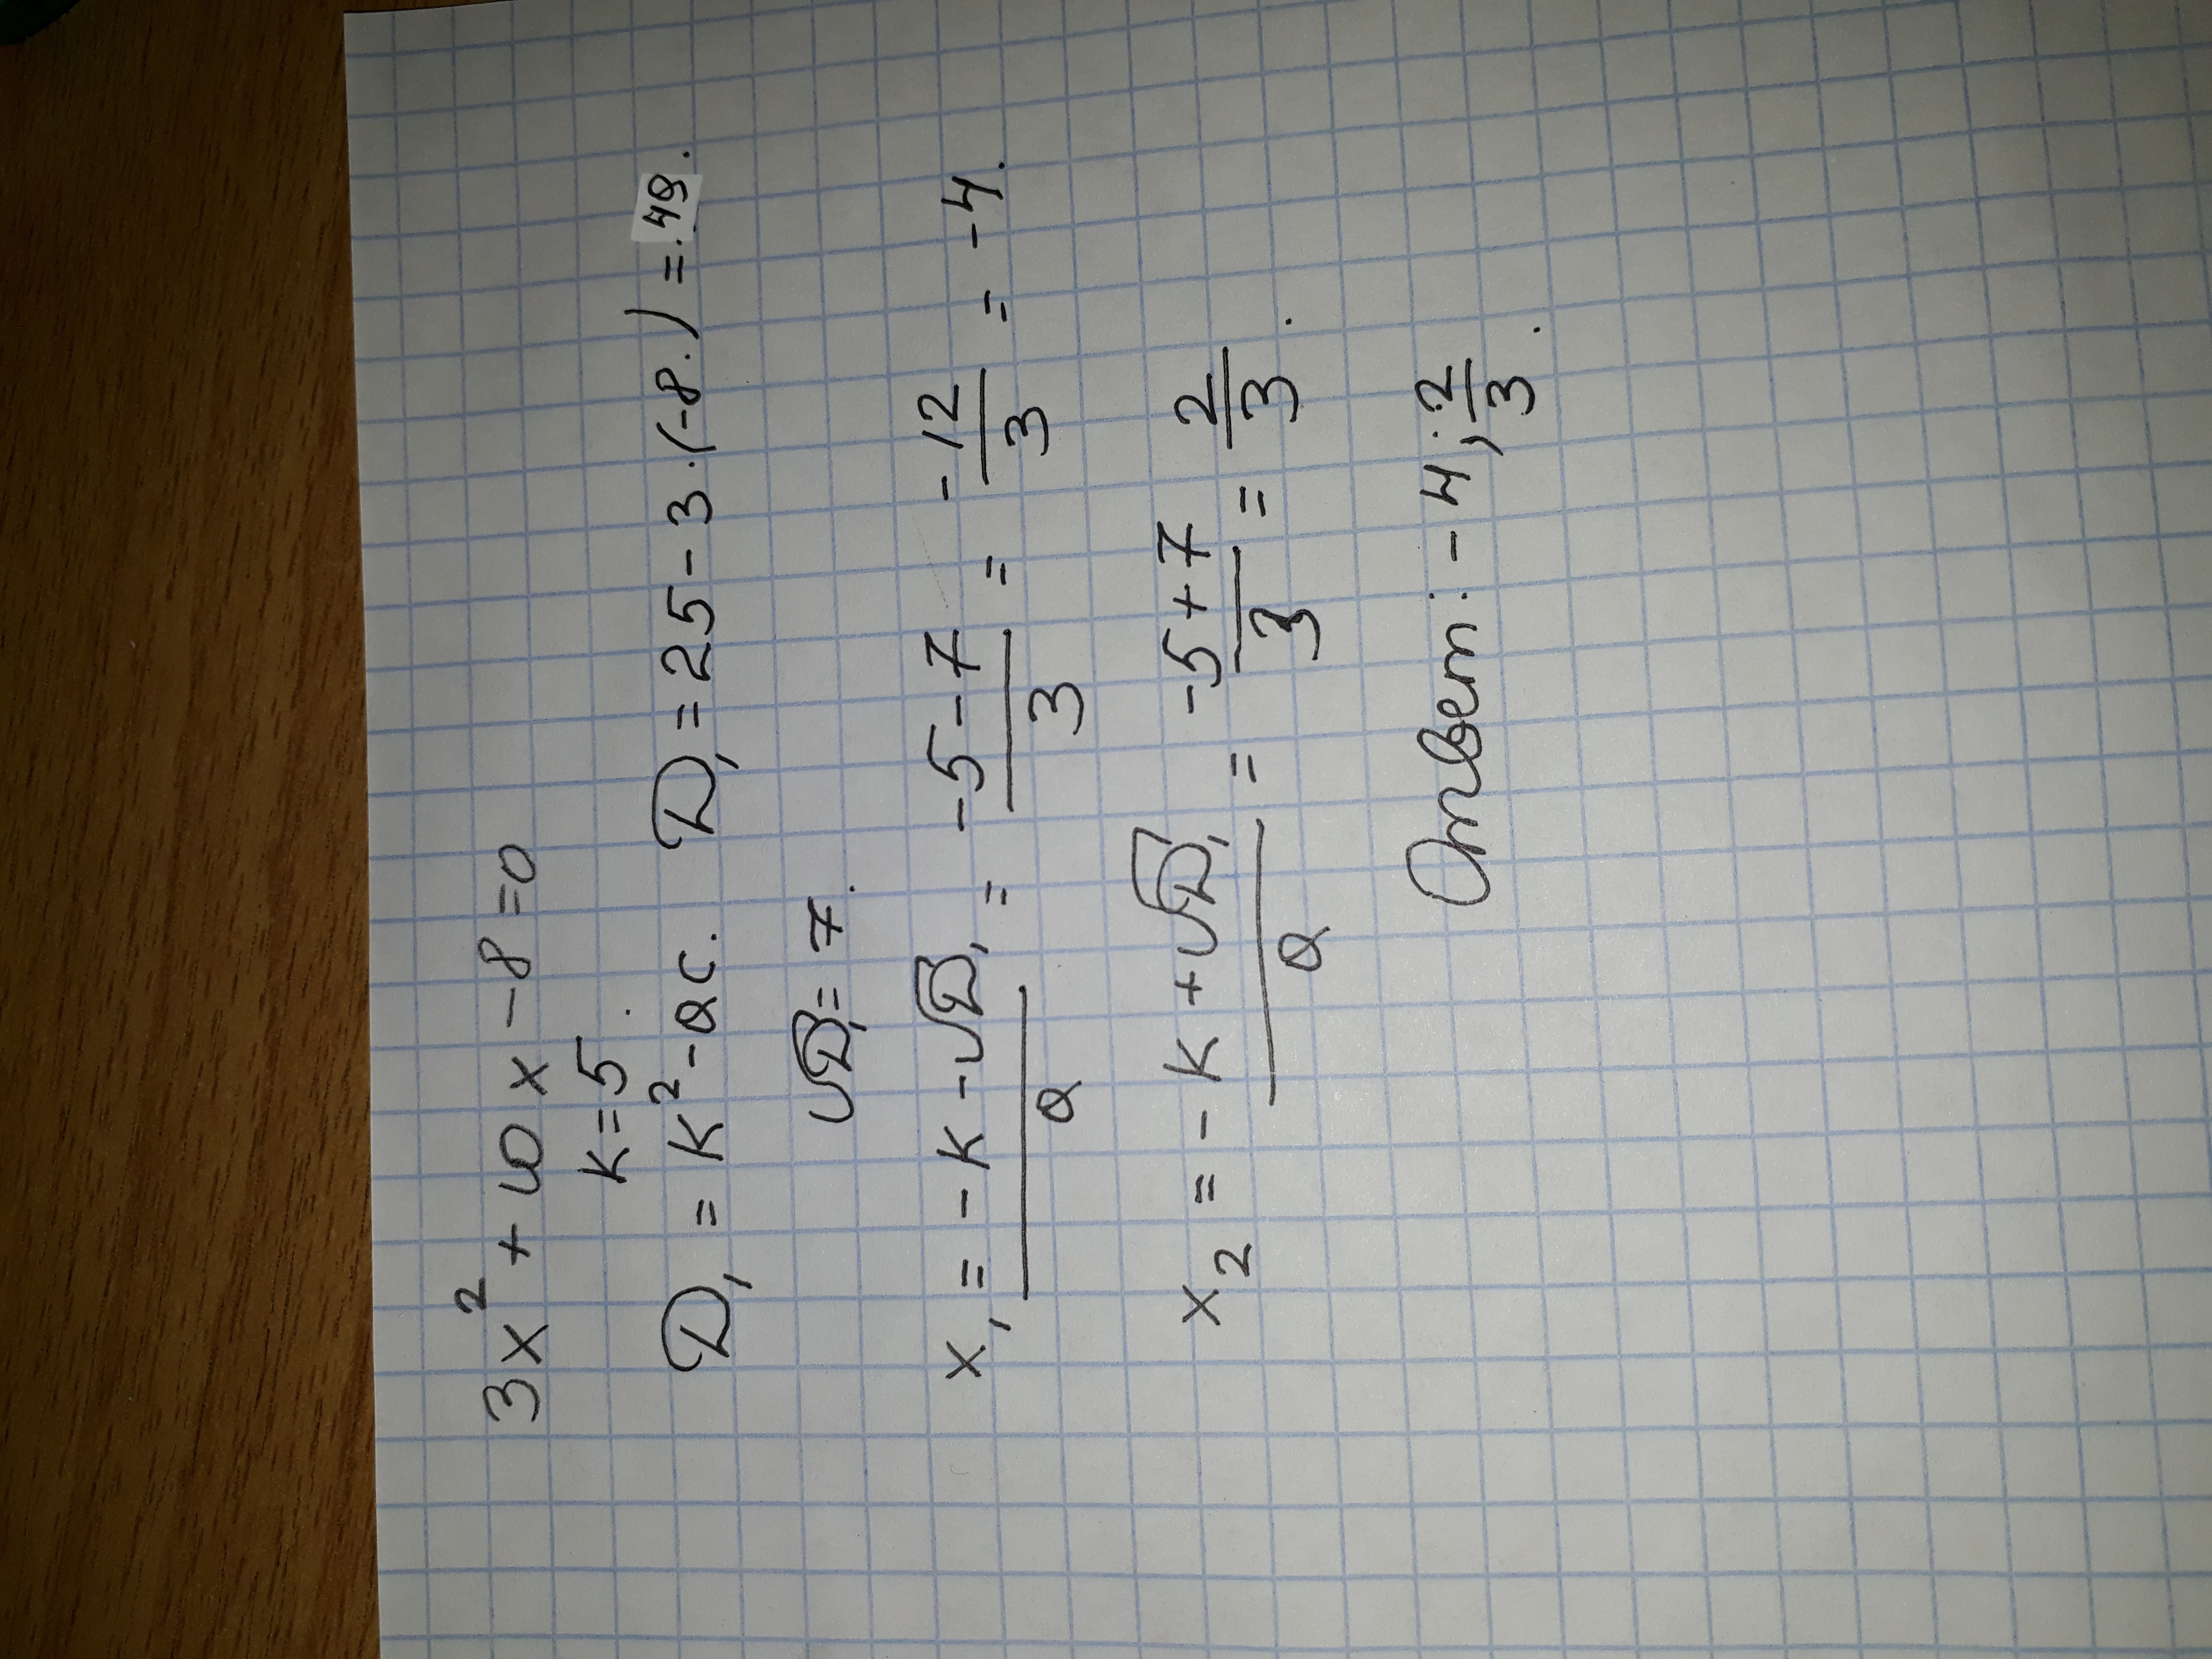 3x² + 10x - 8 = 0
K = 5.
D₁ = K² - ac. D₁ = 25 - 3·(-8.) = .49.
√D₁ = 7.
x₁ = (-K - √D₁)/a = (-5 - 7)/3 = -12/3 = -4.
x₂ = (-K + √D₁)/a = (-5 + 7)/3 = 2/3.
Ответ: -4; 2/3.